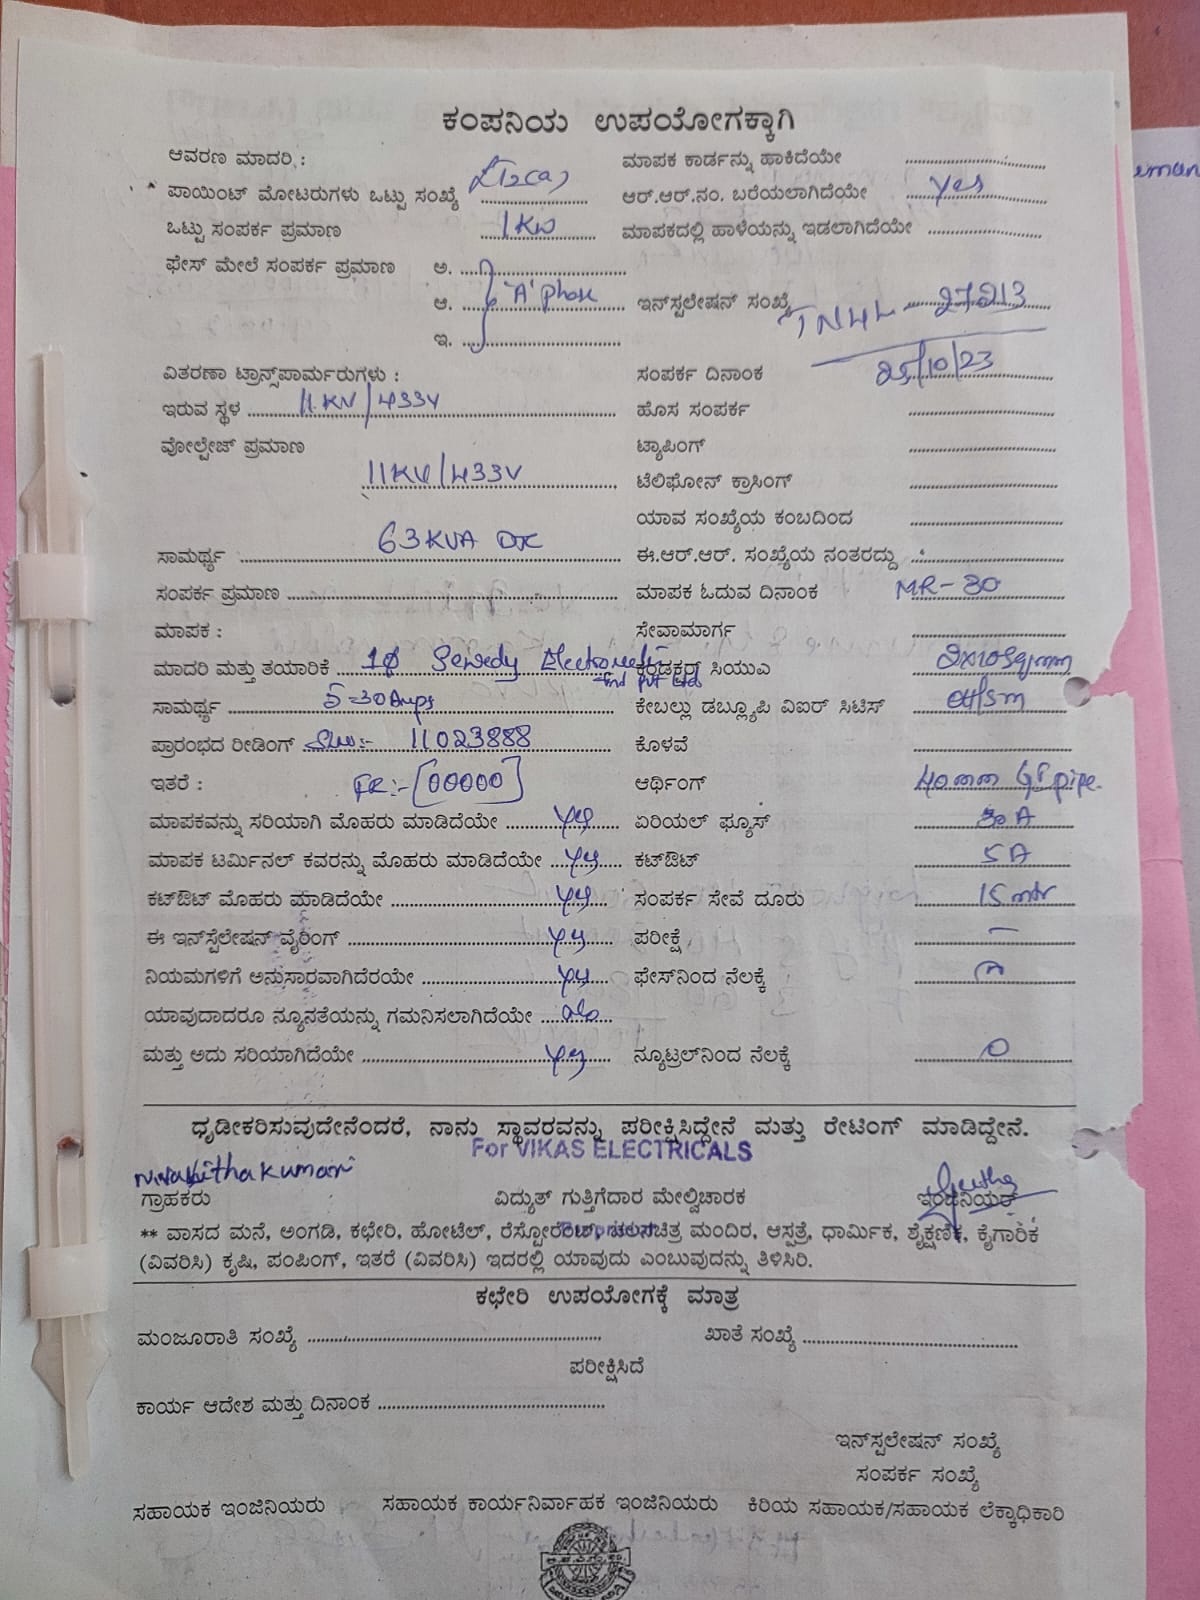 ಕಂಪನಿಯ ಉಪಯೋಗಕ್ಕಾಗಿ
ಆವರಣ ಮಾದರಿ : ಮಾಪಕ ಕಾರ್ಡನ್ನು ಹಾಕಿದೆಯೇ
ಪಾಯಿಂಟ್ ಮೋಟರುಗಳು ಒಟ್ಟು ಸಂಖ್ಯೆ ಆರ್.ಆರ್.ನಂ. ಬರೆಯಲಾಗಿದೆಯೇ yes
ಒಟ್ಟು ಸಂಪರ್ಕ ಪ್ರಮಾಣ 1KW ಮಾಪಕದಲ್ಲಿ ಹಾಳೆಯನ್ನು ಇಡಲಾಗಿದೆಯೇ
ಫೇಸ್ ಮೇಲೆ ಸಂಪರ್ಕ ಪ್ರಮಾಣ ಅ.
ಆ. 'A' Phase ಇನ್‌ಸ್ಟಲೇಷನ್ ಸಂಖ್ಯೆ TNHL - 27213
ಇ.
ವಿತರಣಾ ಟ್ರಾನ್ಸ್‌ಪಾರ್ಮರುಗಳು : ಸಂಪರ್ಕ ದಿನಾಂಕ 25/10/23
ಇರುವ ಸ್ಥಳ 11KV/433V ಹೊಸ ಸಂಪರ್ಕ
ವೋಲ್ಟೇಜ್ ಪ್ರಮಾಣ ಟ್ಯಾಪಿಂಗ್
11KV/433V ಟೆಲಿಫೋನ್ ಕ್ರಾಸಿಂಗ್
ಯಾವ ಸಂಖ್ಯೆಯ ಕಂಬದಿಂದ
ಸಾಮರ್ಥ್ಯ 63KVA ಈ.ಆರ್.ಆರ್. ಸಂಖ್ಯೆಯ ನಂತರದ್ದು
ಸಂಪರ್ಕ ಪ್ರಮಾಣ ಮಾಪಕ ಓದುವ ದಿನಾಂಕ MR-30
ಮಾಪಕ : ಸೇವಾಮಾರ್ಗ
ಮಾದರಿ ಮತ್ತು ತಯಾರಿಕೆ 1ϕ Sewedy Electrometer ಕಂಡಕ್ಟರ್ ಸಿಯುಎ 2x10Sqmm
Ind Pvt Ltd
ಸಾಮರ್ಥ್ಯ 5-30Amps ಕೇಬಲ್ಲು ಡಬ್ಲ್ಯೂಪಿ ವಿಐಆರ್ ಸಿಟಿಸ್
ಪ್ರಾರಂಭದ ರೀಡಿಂಗ್ 11023888 ಕೊಳವೆ
ಇತರೆ : FR:-[00000] ಆರ್ಥಿಂಗ್ 40mm GI pipe.
ಮಾಪಕವನ್ನು ಸರಿಯಾಗಿ ಮೊಹರು ಮಾಡಿದೆಯೇ yes ಏರಿಯಲ್ ಫ್ಯೂಸ್
ಮಾಪಕ ಟರ್ಮಿನಲ್ ಕವರನ್ನು ಮೊಹರು ಮಾಡಿದೆಯೇ yes ಕಟ್‌ಔಟ್ 5A
ಕಟ್‌ಔಟ್ ಮೊಹರು ಮಾಡಿದೆಯೇ yes ಸಂಪರ್ಕ ಸೇವೆ ದೂರು 15 mtr
ಈ ಇನ್‌ಸ್ಟೆಲೇಷನ್ ವೈರಿಂಗ್ yes ಪರೀಕ್ಷೆ –
ನಿಯಮಗಳಿಗೆ ಅನುಸಾರವಾಗಿದೆರಯೇ yes ಫೇಸ್‌ನಿಂದ ನೆಲಕ್ಕೆ
ಯಾವುದಾದರೂ ನ್ಯೂನತೆಯನ್ನು ಗಮನಿಸಲಾಗಿದೆಯೇ no
ಮತ್ತು ಅದು ಸರಿಯಾಗಿದೆಯೇ yes ನ್ಯೂಟ್ರಲ್‌ನಿಂದ ನೆಲಕ್ಕೆ 0
ಧೃಡೀಕರಿಸುವುದೇನೆಂದರೆ, ನಾನು ಸ್ಥಾವರವನ್ನು ಪರೀಕ್ಷಿಸಿದ್ದೇನೆ ಮತ್ತು ರೇಟಿಂಗ್ ಮಾಡಿದ್ದೇನೆ.
For VIKAS ELECTRICALS
ಗ್ರಾಹಕರು ವಿದ್ಯುತ್ ಗುತ್ತಿಗೆದಾರ ಮೇಲ್ವಿಚಾರಕ ಇಂಜಿನಿಯರ್
** ವಾಸದ ಮನೆ, ಅಂಗಡಿ, ಕಛೇರಿ, ಹೋಟೆಲ್, ರೆಸ್ಟೋರೆಂಟ್, ಚಲನಚಿತ್ರ ಮಂದಿರ, ಆಸ್ಪತ್ರೆ, ಧಾರ್ಮಿಕ, ಶೈಕ್ಷಣಿಕ, ಕೈಗಾರಿಕೆ
(ವಿವರಿಸಿ) ಕೃಷಿ, ಪಂಪಿಂಗ್, ಇತರೆ (ವಿವರಿಸಿ) ಇದರಲ್ಲಿ ಯಾವುದು ಎಂಬುವುದನ್ನು ತಿಳಿಸಿರಿ.
ಕಛೇರಿ ಉಪಯೋಗಕ್ಕೆ ಮಾತ್ರ
ಮಂಜೂರಾತಿ ಸಂಖ್ಯೆ ಖಾತೆ ಸಂಖ್ಯೆ
ಪರೀಕ್ಷಿಸಿದೆ
ಕಾರ್ಯ ಆದೇಶ ಮತ್ತು ದಿನಾಂಕ
ಇನ್‌ಸ್ಟಲೇಷನ್ ಸಂಖ್ಯೆ
ಸಂಪರ್ಕ ಸಂಖ್ಯೆ
ಸಹಾಯಕ ಇಂಜಿನಿಯರು ಸಹಾಯಕ ಕಾರ್ಯನಿರ್ವಾಹಕ ಇಂಜಿನಿಯರು ಕಿರಿಯ ಸಹಾಯಕ/ಸಹಾಯಕ ಲೆಕ್ಕಾಧಿಕಾರಿ